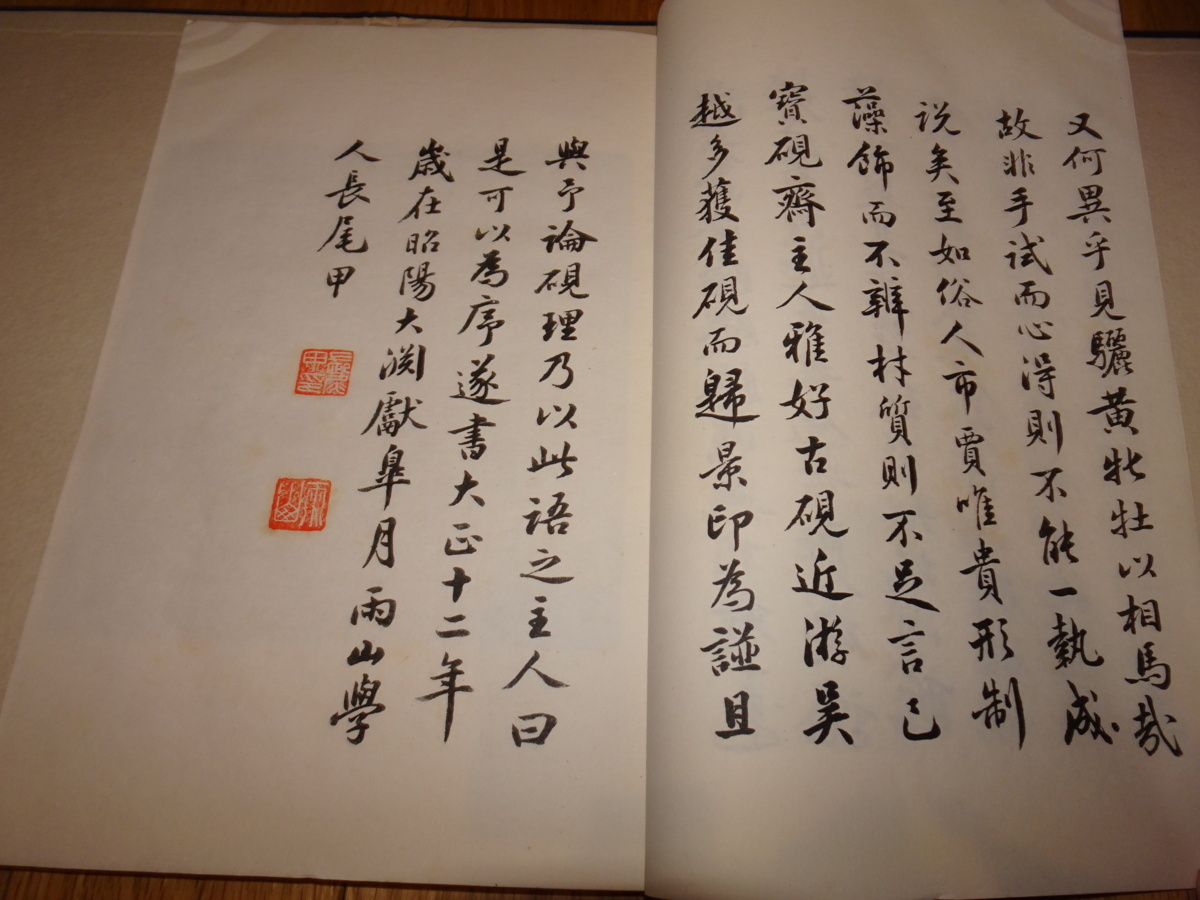 又何異乎見驪黃牝牡以相馬哉
故非手試而心得則不能一執成
説矣至如俗人市賈唯貴形制
藻飾而不辨材質則不足言已
寶硯齋主人雅好古硯近游吳
越多獲佳硯而歸景印為譜且
與予論硯理乃以此語之主人曰
是可以為序遂書大正十二年
歲在昭陽大淵獻皐月雨山學
人長尾甲
雨山